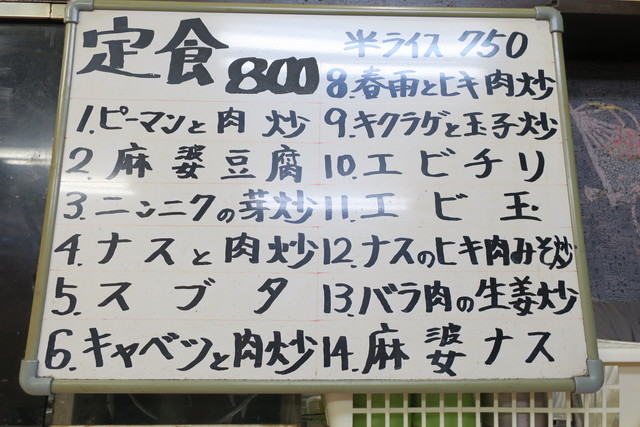 定食 800
1.ピーマンと肉炒
2.麻婆豆腐
3.ニンニクの芽炒
4.ナスと肉炒
5.スブタ
6.キャベツと肉炒
半ライス 750
8.春雨とヒキ肉炒
9.キクラゲと玉子炒
10.エビチリ
11.エビ玉
12.ナスのヒキ肉みそ炒
13.バラ肉の生姜炒
14.麻婆ナス